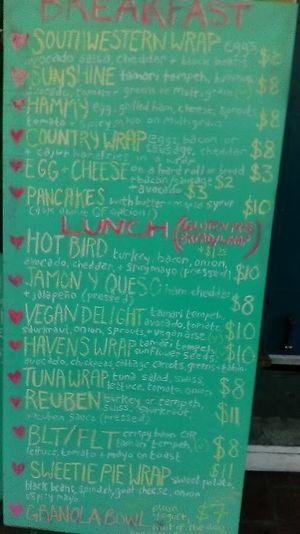 BREAKFAST
SOUTHWESTERN WRAP eggs,
avocado salsa, cheddar + black beans $8
SUNSHINE tamari tempeh, hummus,
avocado, tomato + greens on multigrain $8
HAMMY egg, grilled ham, cheese, sprouts,
tomato + spicy mayo on multigrain $8
COUNTRY WRAP eggs, bacon or
sausage, cheddar
+ cajun homefries in a wrap $8
EGG + CHEESE on a hard roll or bread $3
+ bacon/sausage $2
+ avocado $3
PANCAKES with butter + maple syrup $10
(ask about GF option!)
LUNCH (GLUTEN FREE
BREAD/WRAP
HOT BIRD turkey, bacon, onion,
avocado, cheddar, + spicy mayo (pressed) $10
JAMON Y QUESO ham cheddar
+ jalapeño (pressed) $8
VEGAN DELIGHT tamari tempeh,
avocado, tomato,
saurkraut, onion, sprouts + veganaise $10
HAVENS WRAP tamari tempeh,
sunflower seeds,
avocado, chickpeas, cabbage, carrots, greens + tahini $10
TUNA WRAP tuna salad, swiss,
lettuce, tomato, onion $8
REUBEN turkey or tempeh,
swiss, saurkraut,
+ reuben sauce (pressed) $11
BLT/FLT crispy bacon OR
tamari tempeh,
lettuce, tomato + mayo on toast $8
SWEETIE PIE WRAP sweet potato, $11
black beans, spinach, goat cheese, onion
+ spicy mayo
GRANOLA BOWL plain
yogurt,
fruit of the day $7